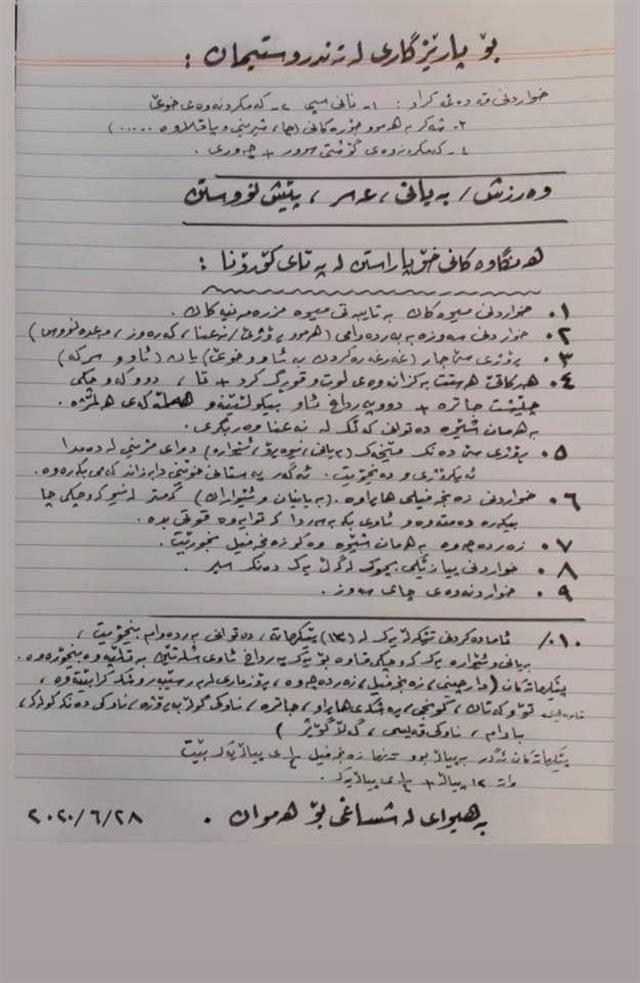 بۆ پارێزگاری لە تەندروستیمان :
خواردنی قەدەغەکراو : ١- نانی سپی ٢- کەمکردنەوەی خوێ
٣- شەکر بە هەموو جۆرەکانی (چا، شیرینی و پاقلاوە .....)
٤- کەمکردنەوەی گۆشتی سوور + چەوری .
وەرزش / بەیانی ، عەسر ، پێش نووستن
هەنگاوەکانی خۆپاراستن لە پەتای کۆرۆنا :
١٠ خواردنی میوەکان بە تایبەتی میوە مزرەمەنیەکان .
٢٠ خواردنی سەوزە بە بەردەوامی (هەموو ڕۆژێ / نەعنا ، کەرەوز ، مەعدەنووس)
٣٠ ڕۆژی سێ جار (غەرغەرەکردن بە ئاو و خوێ) یان (ئاو و سرکە)
٤٠ هەرکاتێ هەستت بە گرانەوەی لوت و قورگ کرد + تا ، دوو کەوچکی
چێشت جاترە + دوو پەرداخ ئاو بیکوڵێنە و هەڵمەکەی هەڵمژە .
بە هەمان شێوە دەتوانی کەڵک لە نەعنا وەربگری .
٥٠ ڕۆژی سێ دەنک مێخەک (بەیانی ، نیوەڕۆ ، ئێوارە) دوای مژینی لە دەمدا
ئەیکرۆژی و دەیخۆیت . ئەگەر پەستانی خوێنی دابەزاند کەمی بکەرەوە .
٦٠ خواردنی زەنجەفیلی هاڕاوە . (بەیانیان و ئێواران) کەمتر لە نیو کەوچکی چا
بیکەرە دەمتەوە و ئاوی بکە بەسەردا کە توایەوە قوتی بدە .
٧٠ زەردەچەوە بە هەمان شێوە وەکو زەنجەفیل بخورێت .
٨٠ خواردنی پیازێکی بچوک لەگەڵ یەک دەنک سیر .
٩٠ خواردنەوەی چای سەوز .
١٠٠/ ئامادەکردنی تێکەڵەیەک لە (١٣) پێکهاتە ، دەتوانی بەردەوام بیخۆیت ،
بەیانی و ئێوارە یەک کەوچکی قاوە بۆ یەک پەرداخ ئاوی شلەتێن بە قاپێکەوە بیخۆرەوە .
پێکهاتەکان (دارچینی ، زەنجەفیل ، زەردەچەوە ، ڕۆزماری
تۆوی کەتان ، کونجی ، ڕەشکەی هاڕاو ، جاترە ، ناوکی گوڵەبەڕۆژە ، ناوکی دەنکە کولەکە ،
بادام ، ناوکی قەیسی ، گەڵاگوێز )
پێکهاتەکان ئەگەر بە پیاڵە بوو تەنها زەنجەفیل ی پیاڵەیەک بێت
وات ١٢ پیاڵە + ی پیاڵەیەک .
بە هیوای لەشساغی بۆ هەموان . ٢٠٢٠/٦/٢٨